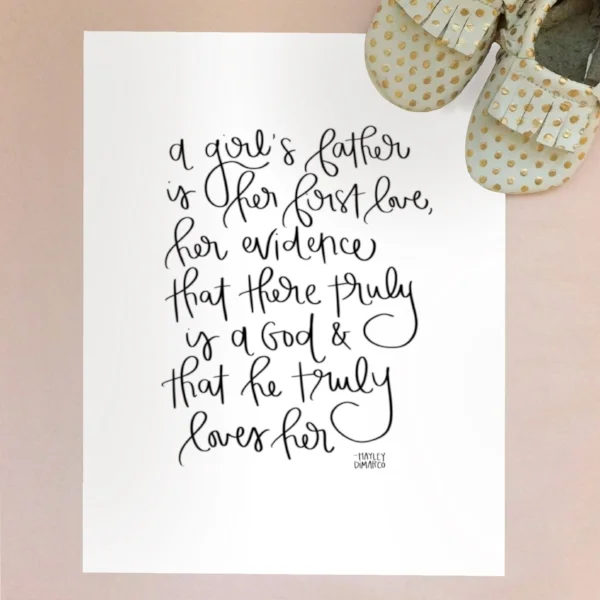 a girl's father
is her first love,
her evidence
that there truly
is a God &
that he truly
loves her
-HAYLEY
DIMARCO